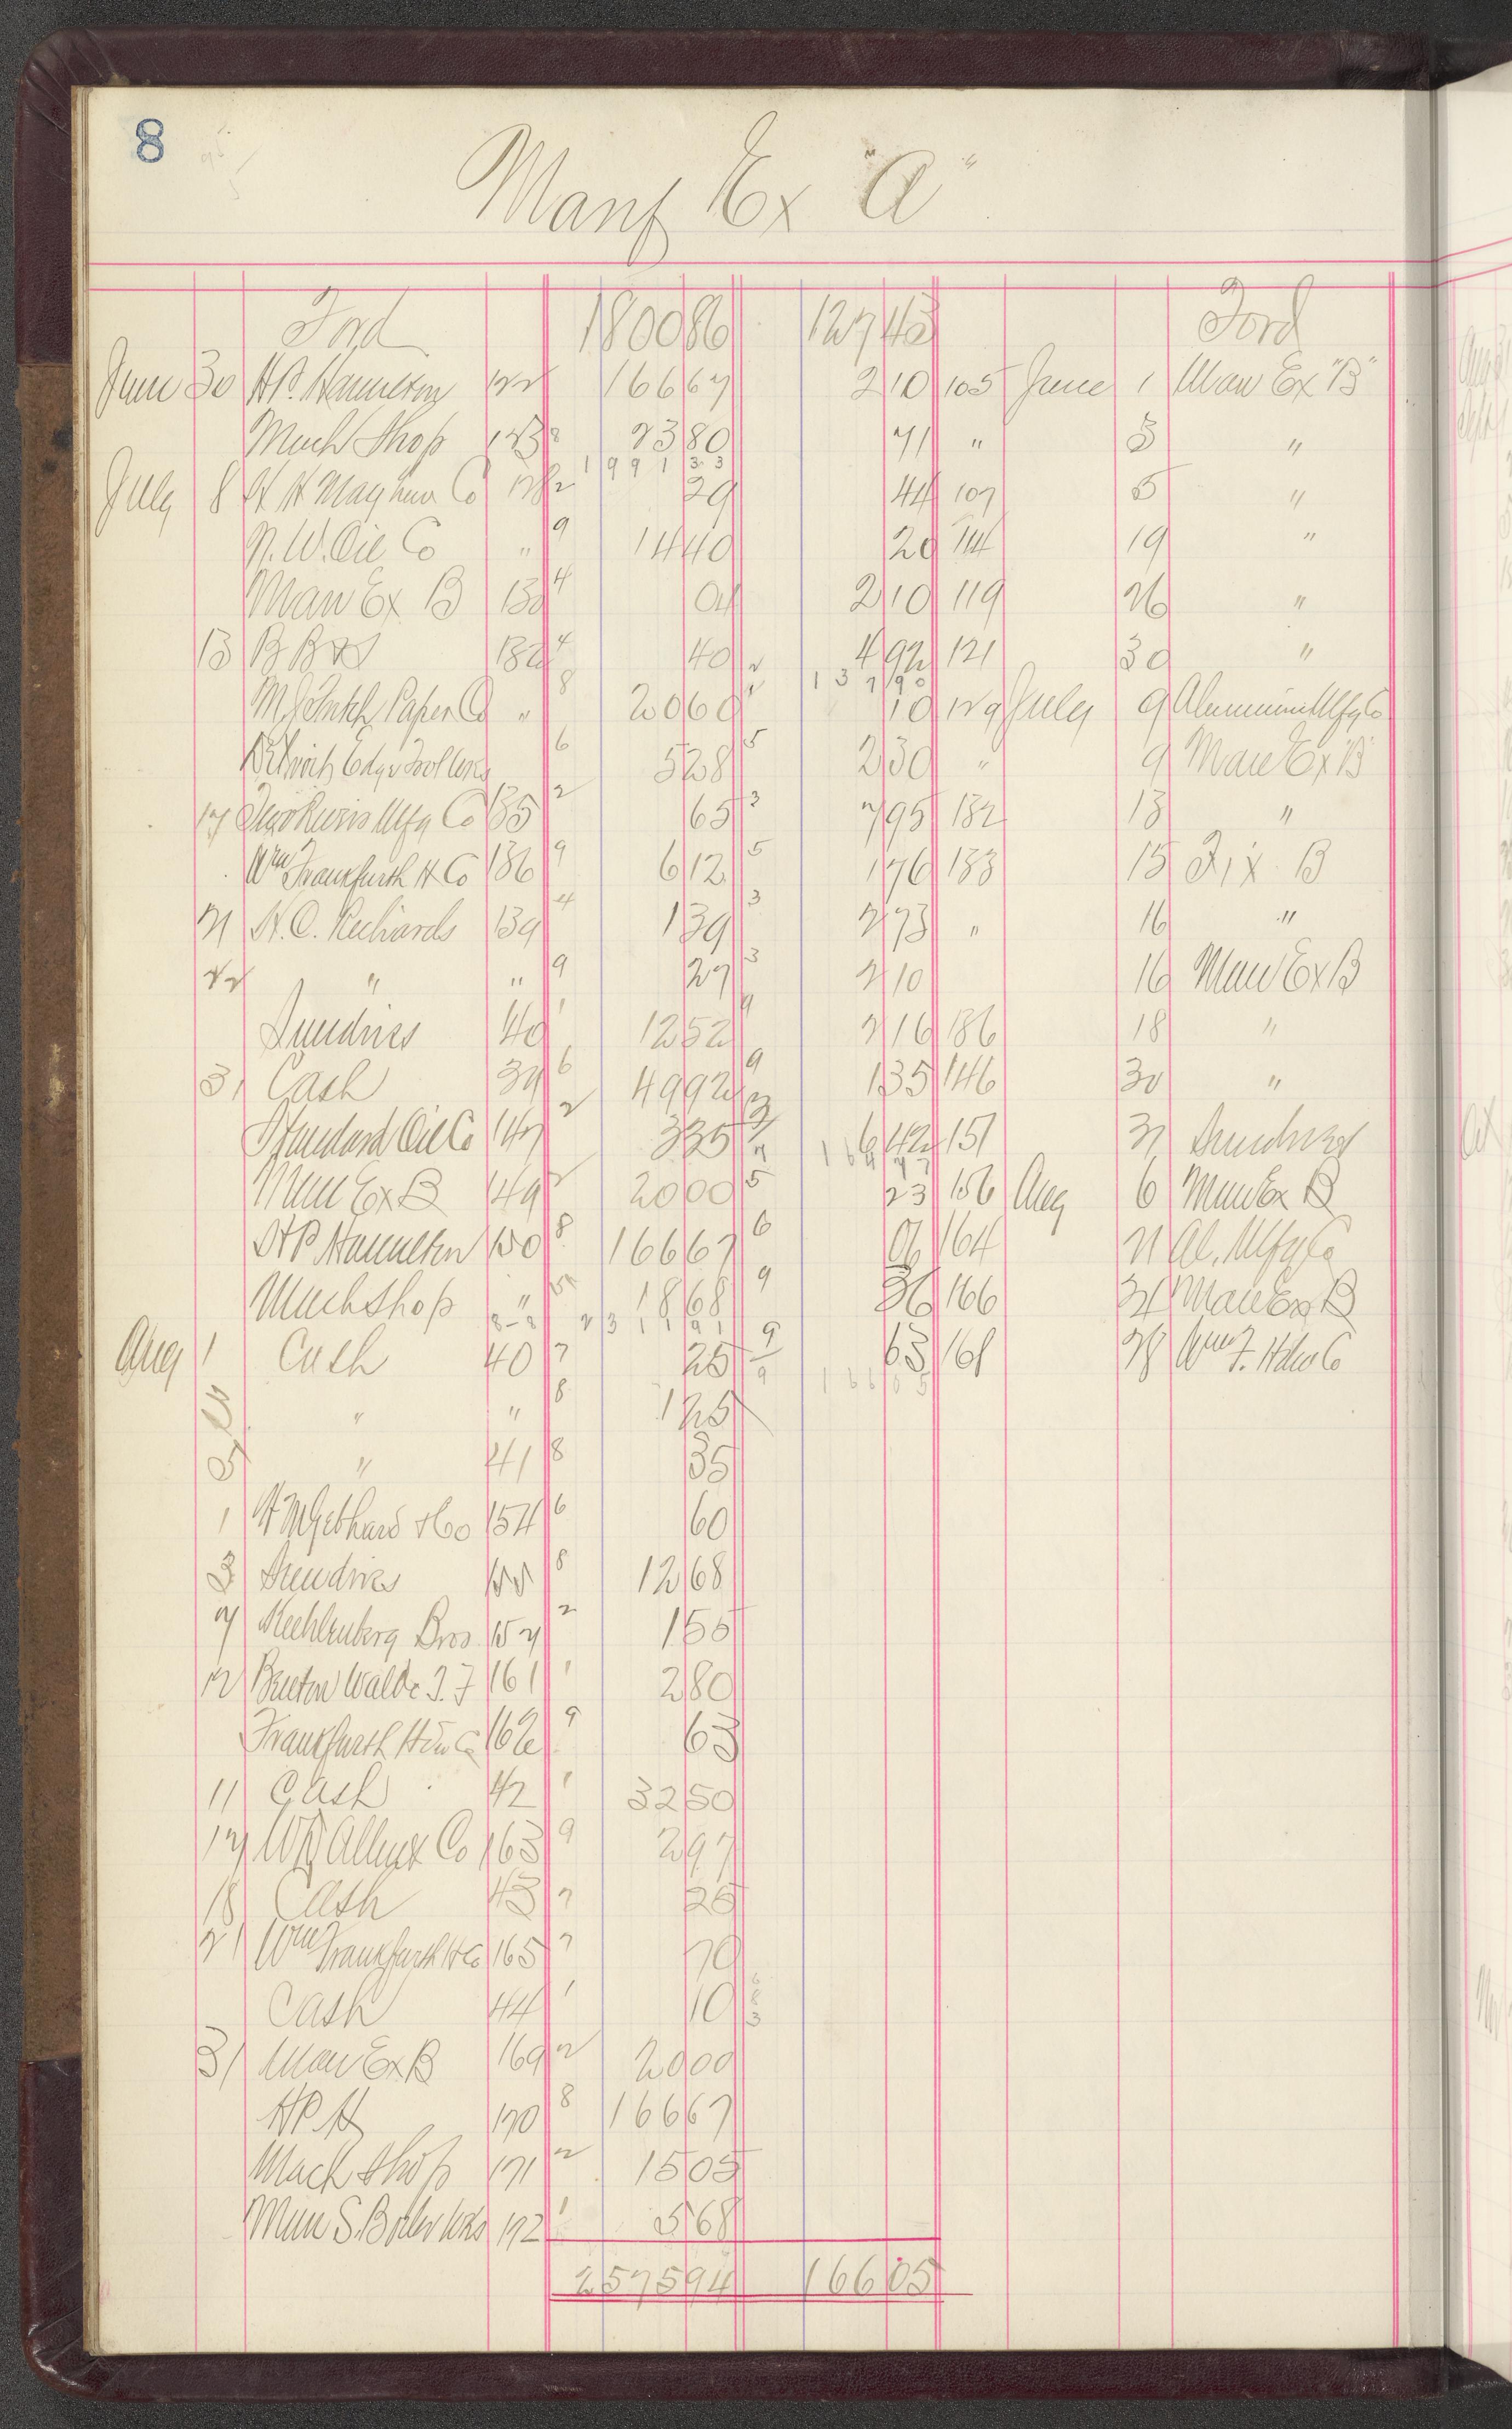 8
Manf Ex "A"
Ford 1800 86 127 43 Ford
June 30 H.P. Hamilton 122 166 67 2 10 105 June 1 Man Ex "B"
Mach Shop 123 8 23 80 71 " 3 "
1991 33
July 8 128 2 29 44 107 5 "
N.W. Oil Co " 9 14 40 20 114 19 "
Man Ex B 130 4 04 2 10 119 26 "
13 132 4 40 2 4 92 121 30 "
137 90
Paper Co " 8 20 60 1 10 129 July 9 Aluminum Mfg Co
Edge Tool Wks 6 5 28 5 2 30 " 9 Man Ex "B"
17 Mfg Co 135 2 65 3 7 95 132 13 "
Wm Frankfurth H Co 136 9 6 12 5 1 76 133 15 Fix B
21 H.C. Richards 139 4 1 39 3 2 73 " 16 "
22 " " 9 27 3 2 10 16 Man Ex B
Sundries 40 1 12 52 9 2 16 136 18 "
31 Cash 39 6 49 92 9 1 35 146 30 "
Standard Oil Co 147 2 3 35 6 42 151 31 Sundries
Man Ex B 149 2 20 00 5 23 156 Aug 6 Man Ex B
H P Hamilton 150 8 166 67 6 06 164 21 Al. Mfg Co
Mach Shop " 18 68 9 36 166 31 Man Ex B
Aug 1 Cash 40 7 25 9 63 168 28 Wm F. Hdw Co
166 05
" " 8 1 25
5 " 41 8 35
1 Gebhard & Co 154 6 60
3 Sundries 155 8 12 68
7 Bros 157 2 1 55
12 161 1 2 80
Frankfurth Hdw Co 162 9 63
11 Cash 42 1 32 50
17 Co 163 9 2 97
18 Cash 43 7 25
21 Wm Frankfurth H Co 165 7 70
Cash 44 1 10
31 Man Ex B 169 2 20 00
H P H 170 8 166 67
Mach Shop 171 2 15 05
S. Boiler Wks 172 1 5 68
2575 94 166 05